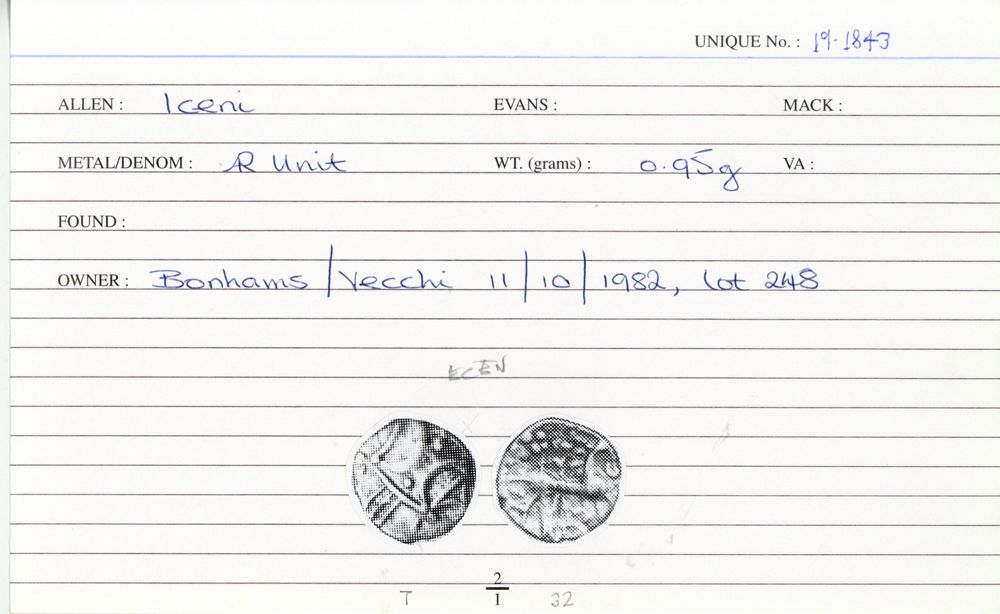 UNIQUE No. : 19.1843
ALLEN : Iceni EVANS : MACK :
METAL/DENOM : AR Unit WT. (grams) : 0.95g VA :
FOUND :
OWNER : Bonhams / Vecchi 11/10/1982, lot 248
ECEN
2
7 1 32